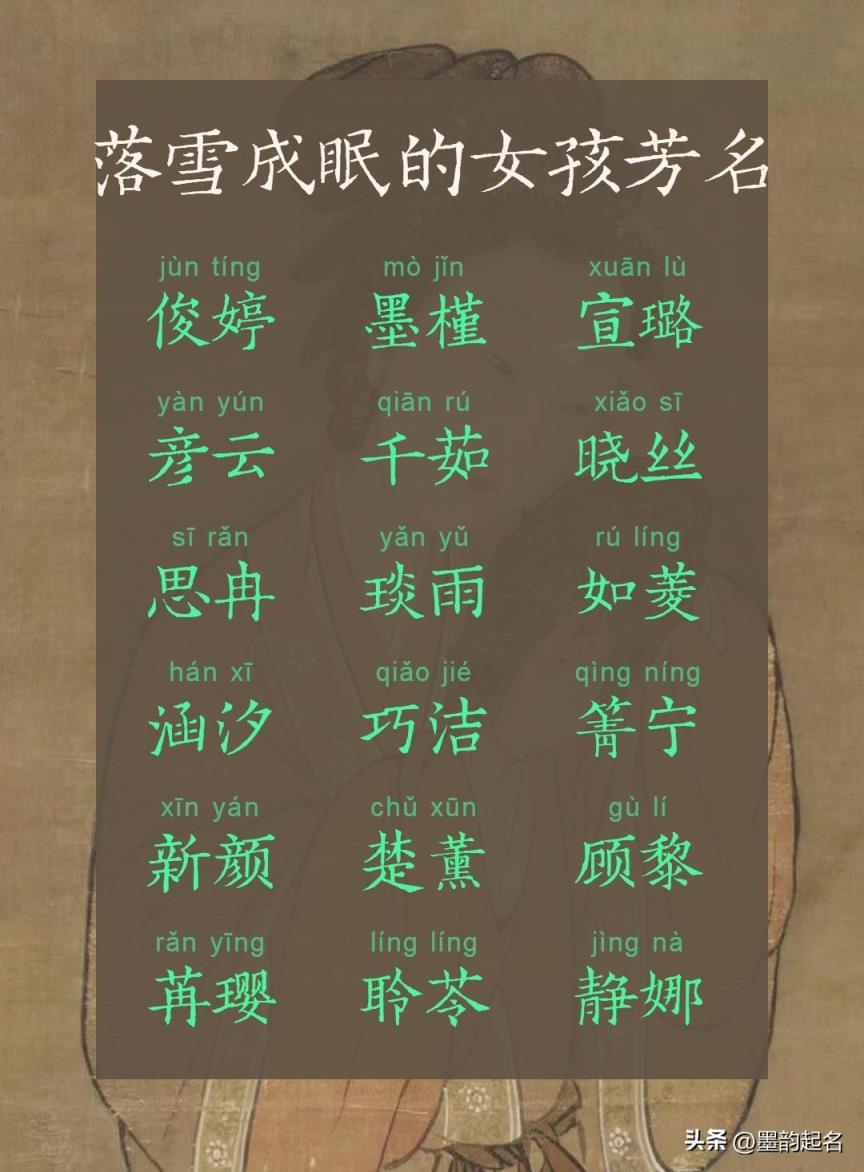 落雪成眠的女孩芳名
jùn tíng mò jǐn xuān lù
俊婷 墨槿 宣璐
yàn yún qiān rú xiǎo sī
彦云 千茹 晓丝
sī rǎn yǎn yǔ rú líng
思冉 琰雨 如菱
hán xī qiǎo jié qìng níng
涵汐 巧洁 箐宁
xīn yán chǔ xūn gù lí
新颜 楚薰 顾黎
rǎn yīng líng líng jìng nà
苒璎 聆苓 静娜
头条 @墨韵起名